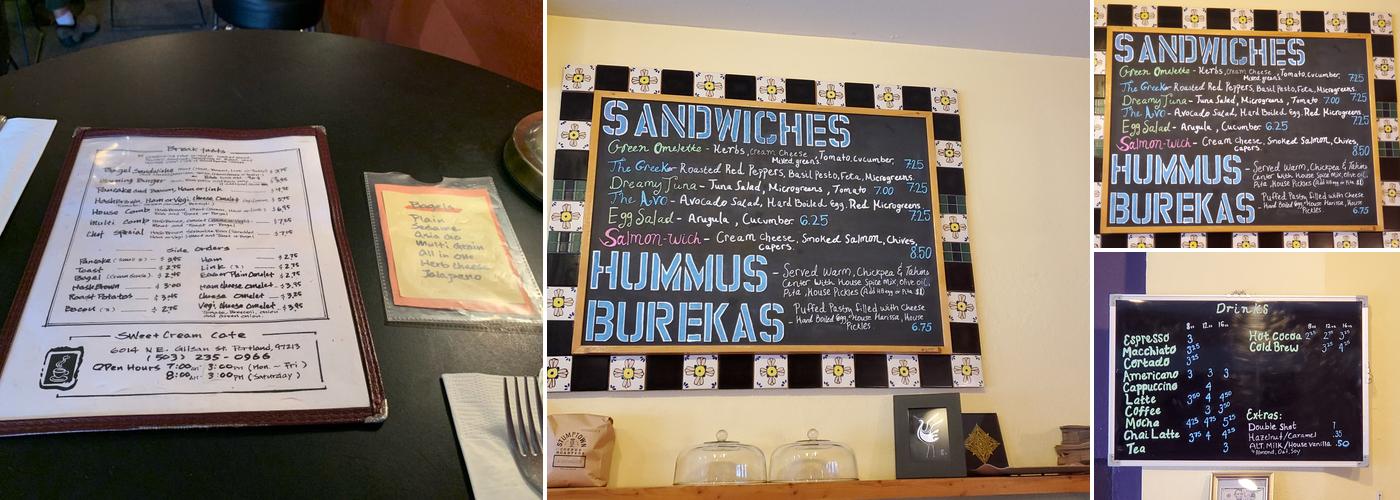 Breakfasts
Bagel Sandwiche
Pancake and Bacon, Ham or Link
House Comb
Multi Comb
Chef Special
Side orders
Pancake
Toast $ 2.75
Bagel
HashBrown $ 3.00
Roast Potatoes $ 3.95
Bacon (3) $ 2.95
Ham $ 2.95
Link (2)
Ham cheese omelet
Cheese omelet $ 3.25
Vegi cheese omelet $ 3.95
Sweet Cream Cafe
6014 N.E. Glisan St. Portland, 97213
(503) 235-0966
Open Hours 7:00am - 3:00pm (Mon - Fri)
8:00am - 3:00pm (Saturday)
Bagels
Plain
Sesame
Asiago
Multi Grain
All in one
Herb cheese
Jalapeno
SANDWICHES
Green Omelette - Herbs, Cream Cheese, Tomato, Cucumber,
Mixed greens. 7.25
The Greek - Roasted Red Peppers, Basil Pesto, Feta, Microgreens
7.25
Dreamy Tuna - Tuna Salad, Microgreens, Tomato 7.00
The Avo - Avocado Salad, Hard Boiled Egg, Red Microgreens
7.25
Egg Salad - Arugula, Cucumber 6.25
Salmon-wich - Cream Cheese, Smoked Salmon, Chives,
capers. 8.50
HUMMUS - Served Warm, Chickpea & Tahini
Center With House Spice Mix, Olive oil,
Pita, House Pickles (Add HB egg or Pita $1)
BUREKAS - Puffed Pastry filled with Cheese
- Hard Boiled Egg, House Harissa, House
Pickles 6.75
STUMPTOWN
COFFEE
ROASTERS
SANDWICHES
Green Omelette - Herbs, Cream Cheese, Tomato, Cucumber,
Mixed greens. 7.25
The Greek - Roasted Red Peppers, Basil Pesto, Feta, Microgreens
7.25
Dreamy Tuna - Tuna Salad, Microgreens, Tomato 7.00
The Avo - Avocado Salad, Hard Boiled Egg, Red Microgreens
7.25
Egg Salad - Arugula, Cucumber 6.25
Salmon-wich - Cream Cheese, Smoked Salmon, Chives,
capers. 8.50
HUMMUS - Served Warm, Chickpea & Tahini
Center With House Spice Mix, Olive oil,
Pita, House Pickles (Add HB egg or Pita $1)
BUREKAS - Puffed Pastry filled with Cheese
- Hard Boiled Egg, House Harissa, House
Pickles 6.75
Drinks
8oz 12oz 16oz
Espresso 3
Macchiato 3.25
Cortado 3.25
Americano 3 3 3
Cappuccino 4
Latte 3.50 4 4.50
Coffee 3 3.50
Mocha 4.25 4.75 5.25
Chai Latte 3.75 4 4.25
Tea 3
8oz 12oz 16oz
Hot Cocoa
Cold Brew 3.25 4.25
Extras:
Double Shot 1
Hazelnut/Caramel .35
ALT. Milk/House vanilla .50
*Almond, Oat, Soy